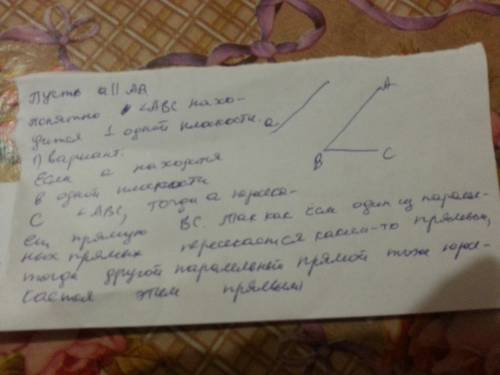 Пусть a || AB
понятно ∠ABC нахо-
дится 1 одной плоскости.
1) вариант.
Если a находится
в одной плоскости
с ∠ABC, тогда a пересе-
ет прямую BC. Так как если один из паралел-
ных прямых пересекается какой-то прямым,
тогда другой паралельной прямой тоже пересе-
кается этим прямым
a
A
B
C